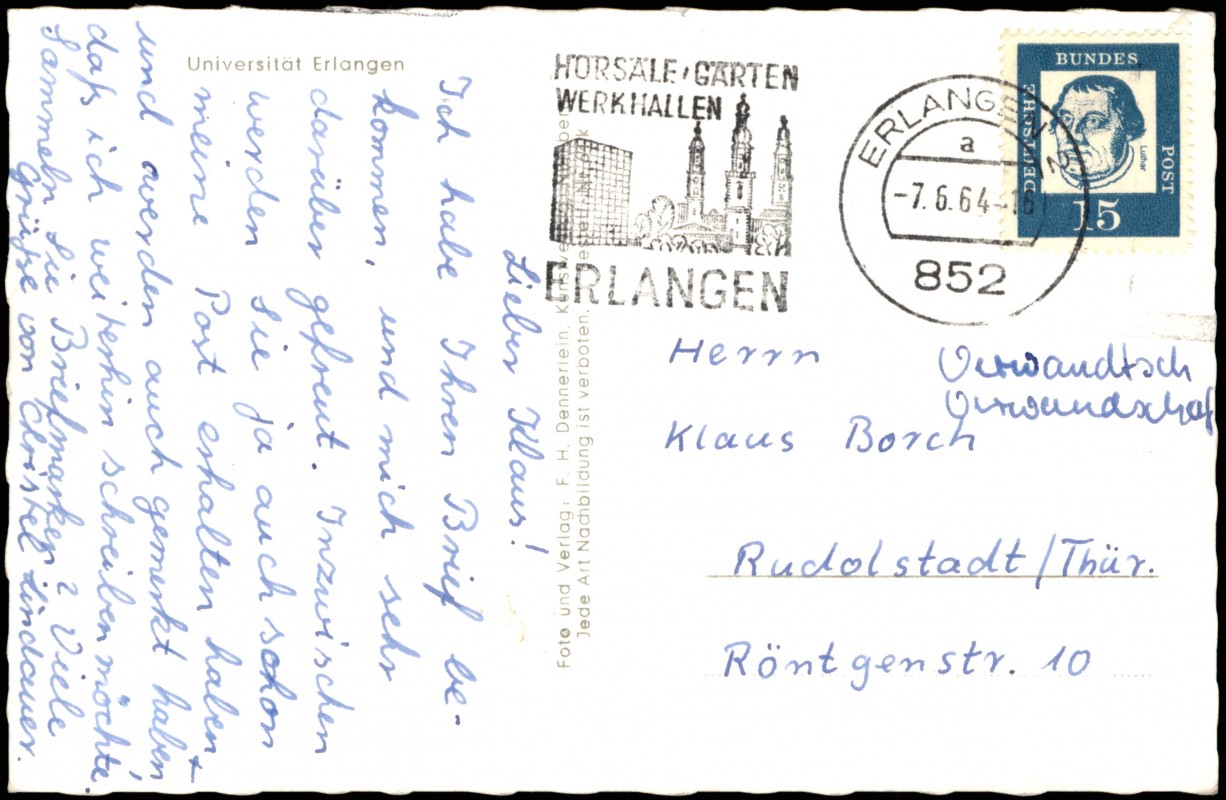 Universität Erlangen
Lieber Klaus!
Ich habe Ihren Brief be-
kommen, und mich sehr
darüber gefreut. Inzwischen
werden Sie ja auch schon
meine Post erhalten haben +
und werden auch gemerkt haben,
daß ich weiterhin schreiben möchte.
Sammeln Sie Briefmarken? Viele
Grüße von Christel Lindauer.
Foto und Verlag: F. H. Dennerlein,
Jede Art Nachbildung ist verboten.
HÖRSÄLE, GÄRTEN
WERKHALLEN
ERLANGEN
ERLANGEN
a
-7.6.64-
852
DEUTSCHE
BUNDES
POST
Luther
15
Herrn
Klaus Borch
Rudolstadt/Thür.
Röntgenstr. 10
Verwandtsch
Verwandschaf